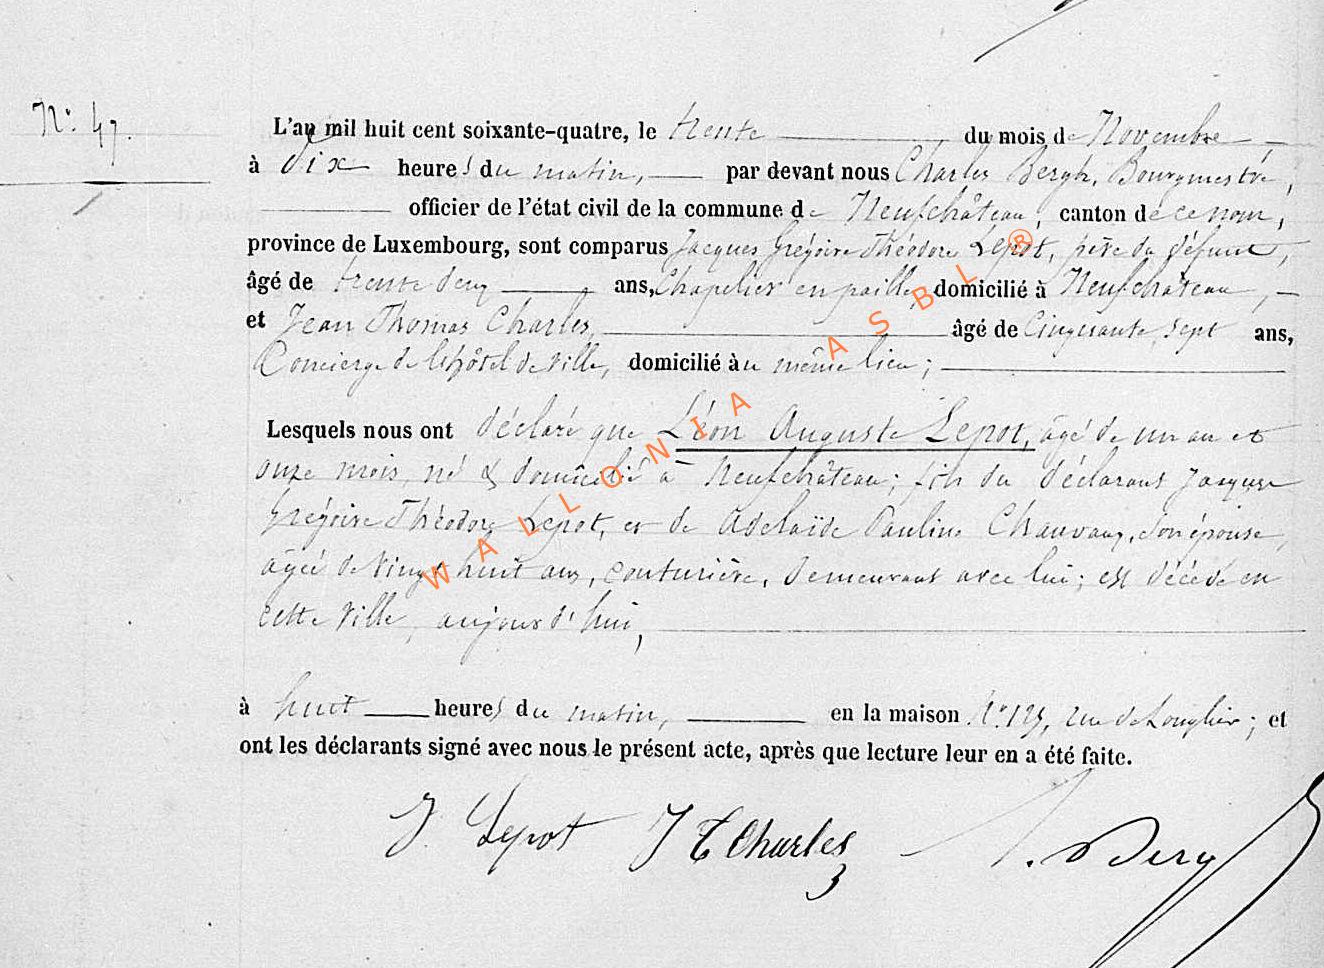 N° 47.
L'an mil huit cent soixante-quatre, le trente du mois de Novembre
à Dix heures du matin, par devant nous Charles Bergh, Bourgmestre,
officier de l'état civil de la commune de Neufchâteau, canton de ce nom,
province de Luxembourg, sont comparus Jacques Grégoire Théodore Lepot, père du défunt,
âgé de trente deux ans, Chapelier en paille, domicilié à Neufchâteau,
et Jean Thomas Charles, âgé de Cinquante sept ans,
Concierge de l'hôtel de ville, domicilié au même lieu;
Lesquels nous ont déclaré que Léon Auguste Lepot, âgé de un an et
onze mois, né & domicilié à Neufchâteau; fils du déclarant Jacques
Grégoire Théodore Lepot, et de Adelaïde Pauline Chauvaux, son épouse,
âgée de vingt huit ans, couturière, demeurant avec lui; est décédé en
cette ville, aujourd'hui,
à huit heures du matin, en la maison N° 125, rue de Longlier; et
ont les déclarants signé avec nous le présent acte, après que lecture leur en a été faite.
J. Lepot J T Charles
WALLONIA ASBL ®